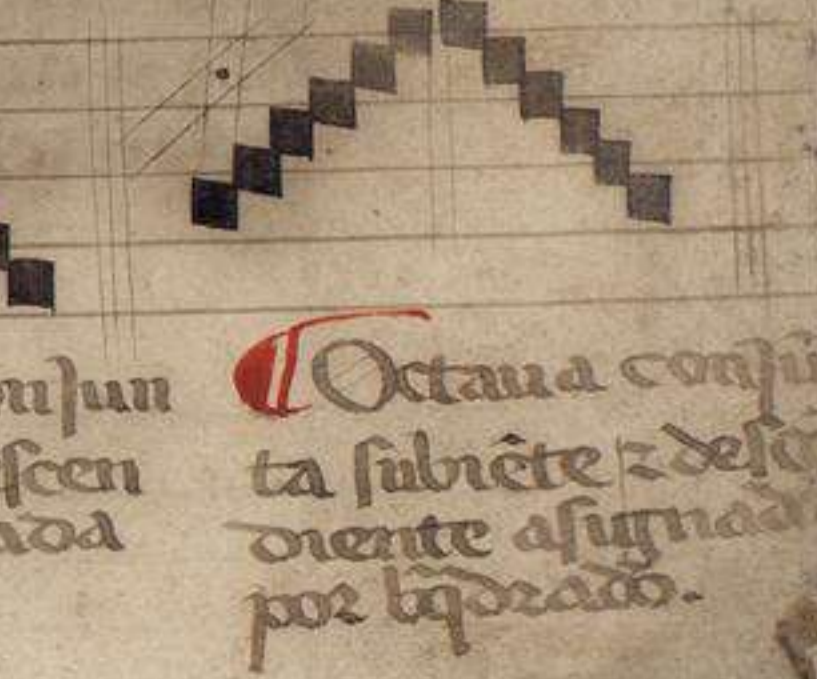 onjun
scen
ada
¶ Octaua conjũ
ta subiẽte ⁊ desçẽ
diente asignada
por bq̃drado.